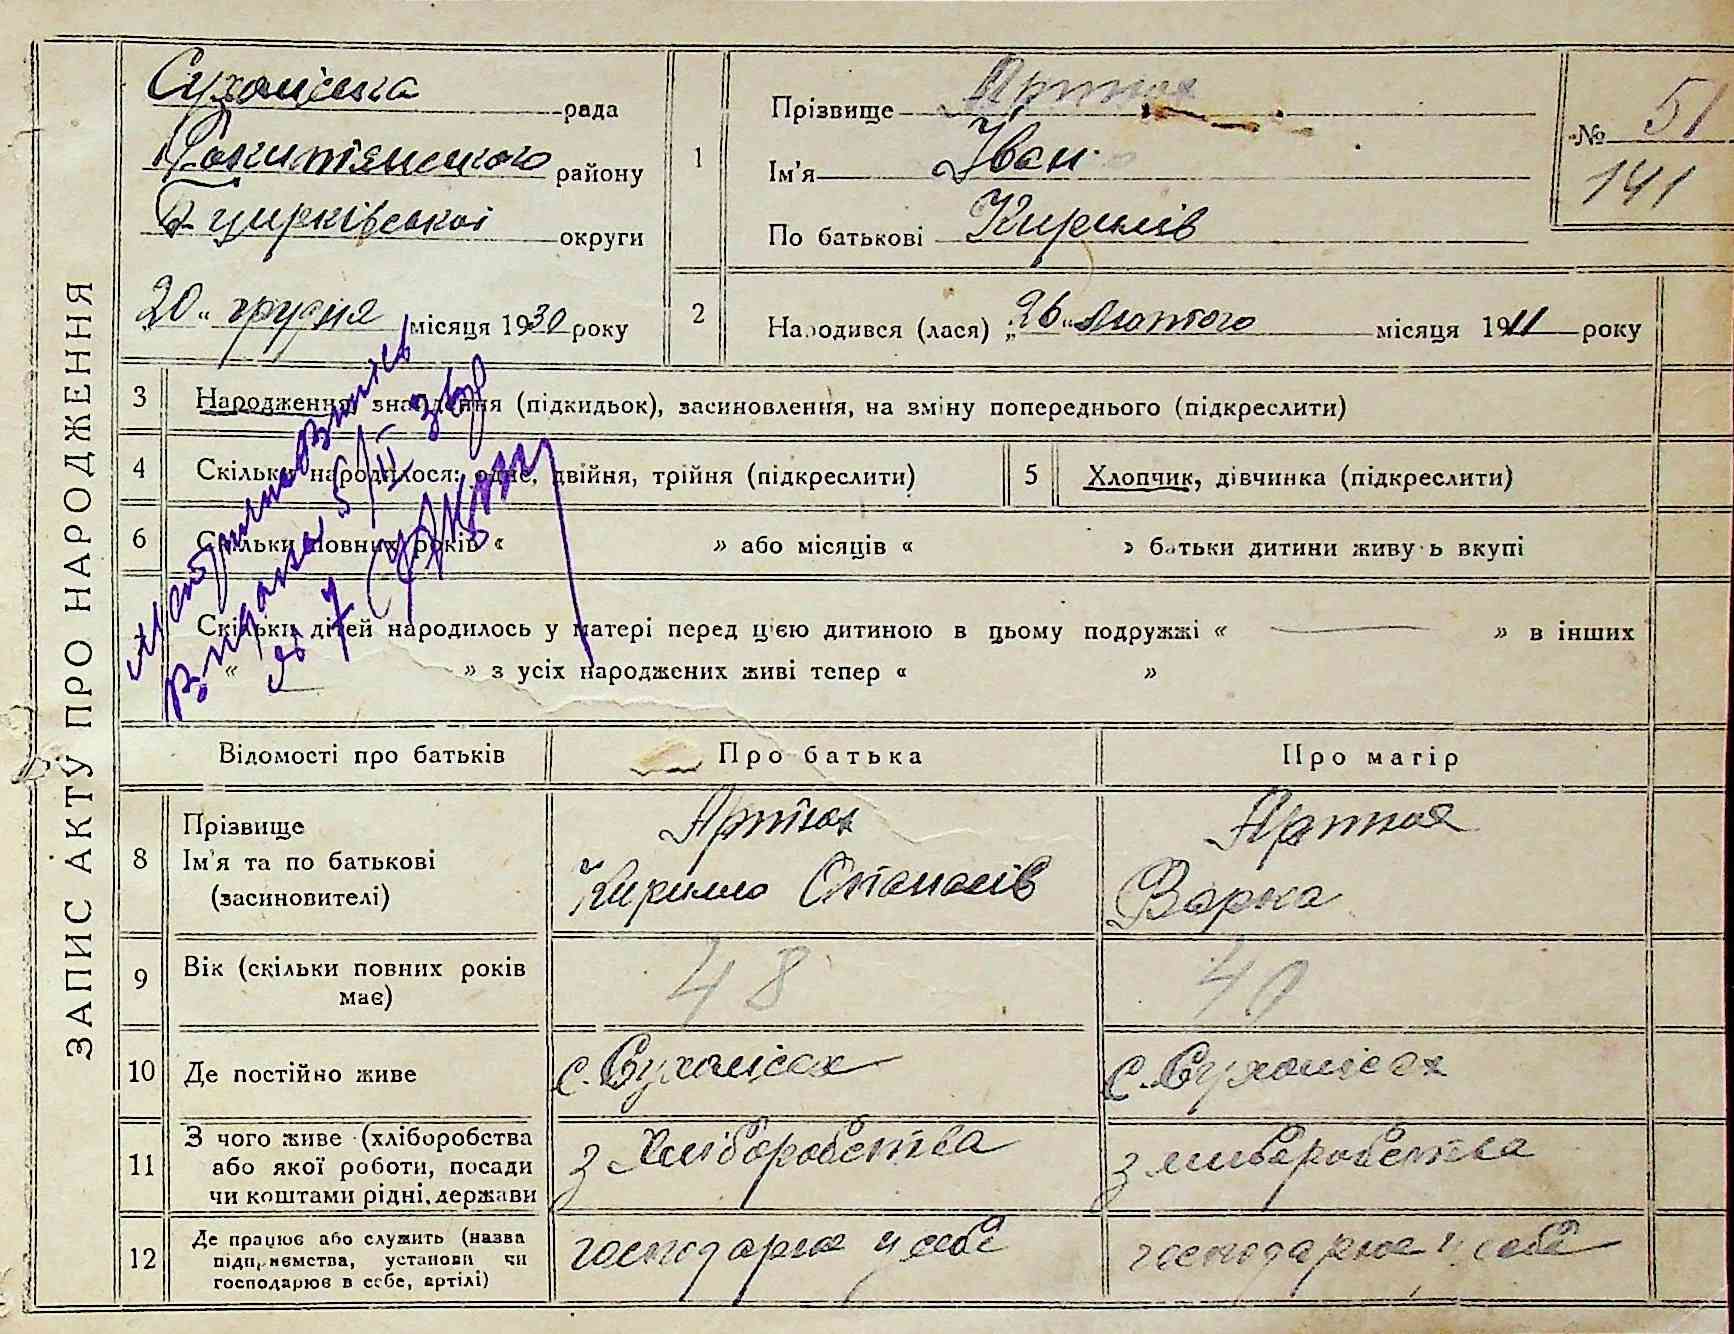 ЗАПИС АКТУ ПРО НАРОДЖЕННЯ
Сухоліська рада
Рокитянського району
Б Церківської округи
20 " грудня місяця 1930 року
1
Прізвище Артюх
Ім'я Іван
По батькові Кирилів
№ 51
141
2
Народився (лася) „ 26 " лютого місяця 1911 року
3 Народження, знайдення (підкидьок), засиновлення, на зміну попереднього (підкреслити)
4 Скільки народилося: одне, двійня, трійня (підкреслити)
5 Хлопчик, дівчинка (підкреслити)
6 Скільки повних років « » або місяців « » батьки дитини живуть вкупі
Скільки дітей народилось у матері перед цією дитиною в цьому подружжі « — » в інших
« » з усіх народжених живі тепер « »
Виписъ
Видана 5/II 30р
№ 7
Відомості про батьків Про батька Про матір
8 Прізвище
Ім'я та по батькові
(засиновителі)
Артюх
Кирило Опанасів
Артюх
Варка
9 Вік (скільки повних років
має)
48
40
10 Де постійно живе
с. Сухолісах
с. Сухолісах
11 З чого живе (хліборобства
або якої роботи, посади
чи коштами рідні, держави
з хліборобства
з хліборобства
12 Де працює або служить (назва
підприємства, установи чи
господарює в себе, артілі)
господарює у себе
господарює у себе